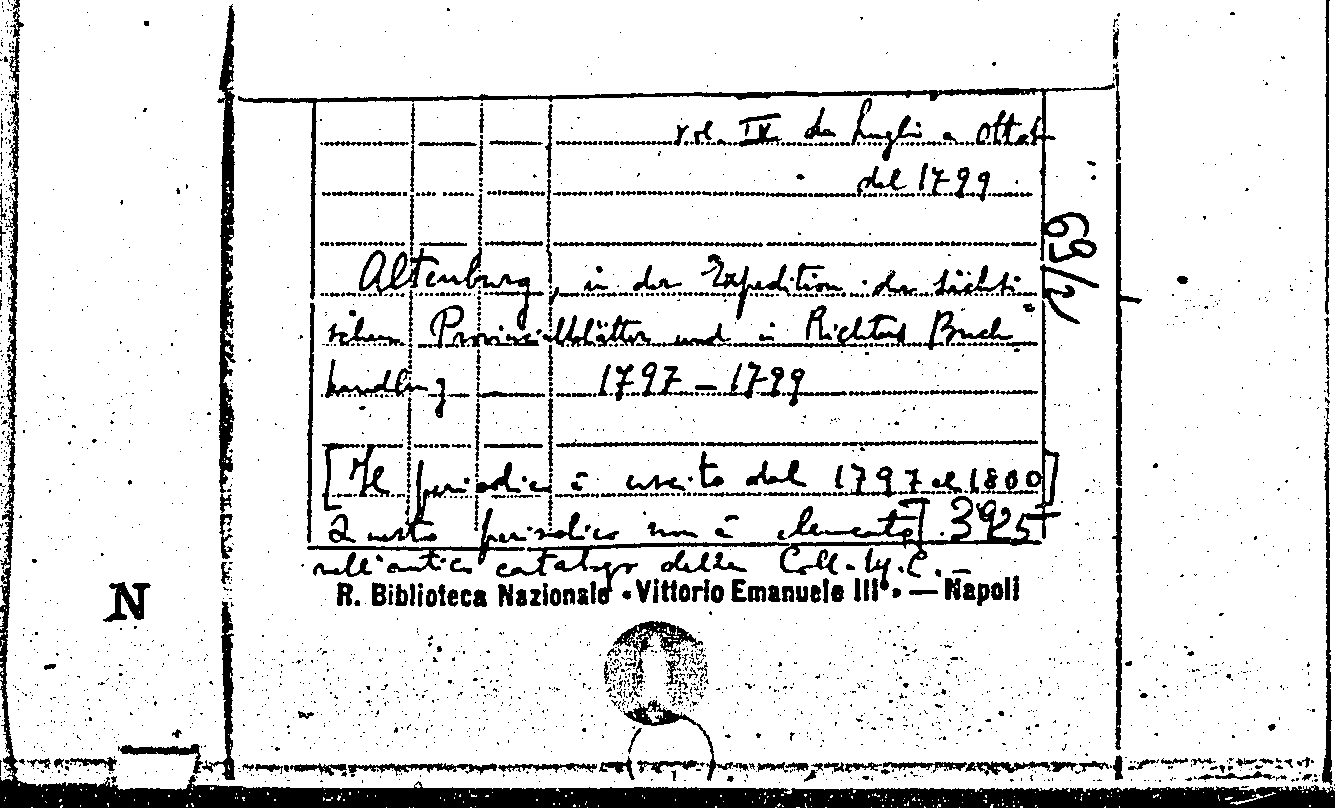 vol. IV da Luglio a Ottob
del 1799
Altenburg, in der Expedition der sächsi-
schen Provinzialblätter und in Richters Buch-
handlung 1797-1799
[Il periodico è uscito dal 1797 al 1800]
Questo periodico non è elencato 3925
nell'antico catalogo della Coll.
R. Biblioteca Nazionale «Vittorio Emanuele III» — Napoli
N
69/2